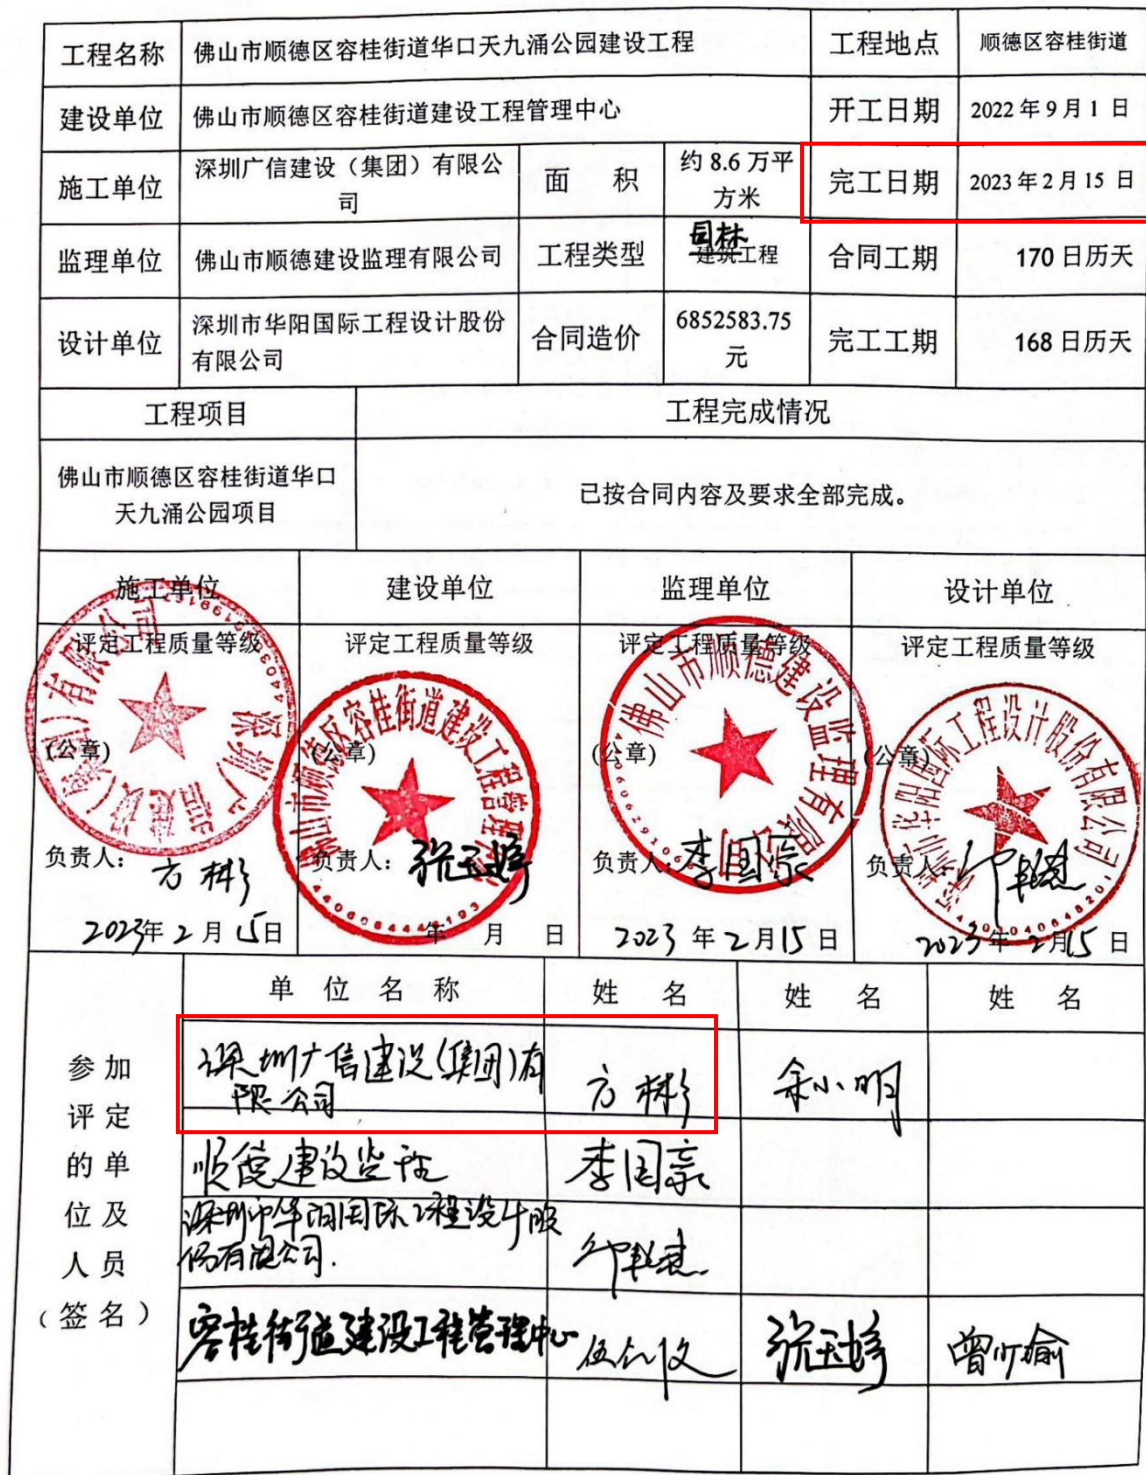 工程名称 佛山市顺德区容桂街道华口天九涌公园建设工程 工程地点 顺德区容桂街道
建设单位 佛山市顺德区容桂街道建设工程管理中心 开工日期 2022年9月1日
施工单位 深圳广信建设（集团）有限公
司 面 积 约 8.6 万平
方米 完工日期 2023年2月15日
监理单位 佛山市顺德建设监理有限公司 工程类型 园林
建筑工程 合同工期 170 日历天
设计单位 深圳市华阳国际工程设计股份
有限公司 合同造价 6852583.75
元 完工工期 168 日历天
工程项目 工程完成情况
佛山市顺德区容桂街道华口
天九涌公园项目 已按合同内容及要求全部完成。
施工单位 建设单位 监理单位 设计单位
评定工程质量等级 评定工程质量等级 评定工程质量等级 评定工程质量等级
(公章) (公章) (公章) (公章)
佛山市顺德建设监理有限公司
负责人： 方彬 负责人： 张玉婷 负责人： 李国豪 负责人：
2023年2月15日 年 月 日 2023年2月15日 2023年2月15日
单 位 名 称 姓 名 姓 名 姓 名
参加
评定
的单
位及
人员
（签名）
深圳广信建设(集团)有
限公司 方彬 余小明
顺德建设监理 李国豪
深圳市华阳国际工程设计股
份有限公司.
容桂街道建设工程管理中心 张玉婷